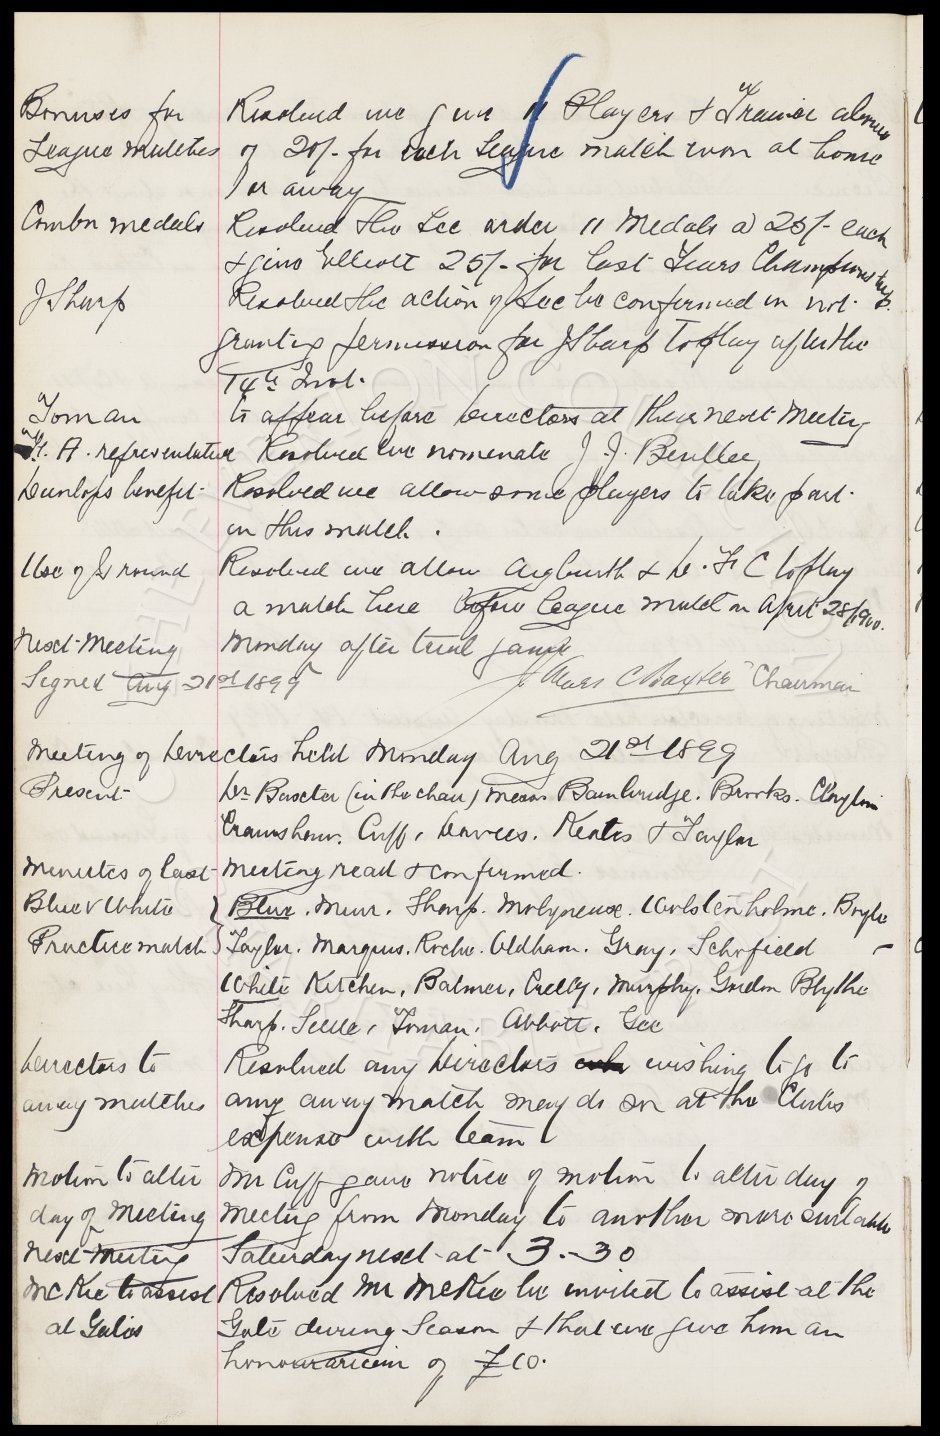 Bonuses for Resolved we give 11 Players & Trainer a bonus
League Matches of 20/- for each League match won at home
or away
Combn medals Resolved the Sec order 11 Medals @ 25/- each
& give Elliott 25/- for last Years Championship.
J Sharp Resolved the action of Sec be confirmed in not
granting permission for J Sharp to play after the
14th Inst.
Toman to appear before Directors at their next Meeting
F. A. representative Resolved we nominate J. J. Bentley
Dunlops benefit Resolved we allow some players to take part
in this match.
Use of Ground Resolved we allow Aigburth & L. F C to play
a match here before league match on April 28/1900.
Next Meeting Monday after trial game
Signed Aug 21st 1899 James C Baxter Chairman
Meeting of Directors held Monday Aug 21st 1899
Present Dr Baxter (in the chair) Messrs Bainbridge. Brooks. Clayton
Crawshaw. Cuff, Davies. Keates & Taylor
Minutes of last Meeting read & confirmed.
Blue v White } Blue. Muir. Sharp. Molyneux. Wolstenholme. Boyle
Practice match } Taylor. Margus. Roche. Oldham. Gray. Schofield
White Kitchen, Balmer, Crelly, Murphy. Gordon Blythe
Sharp. Settle, Toman. Abbott. Gee
Directors to Resolved any Directors wishing to go to
away matches any away match may do so at the Clubs
expense with team
Motion to alter Mr Cuff gave notice of motion to alter day of
day of Meeting Meeting from Monday to another more suitable
Next Meeting Saturday next at 3.30
McKee to assist Resolved Mr McKee be invited to assist at the
at Gates Gate during Season & that we give him an
honourarium of £10.